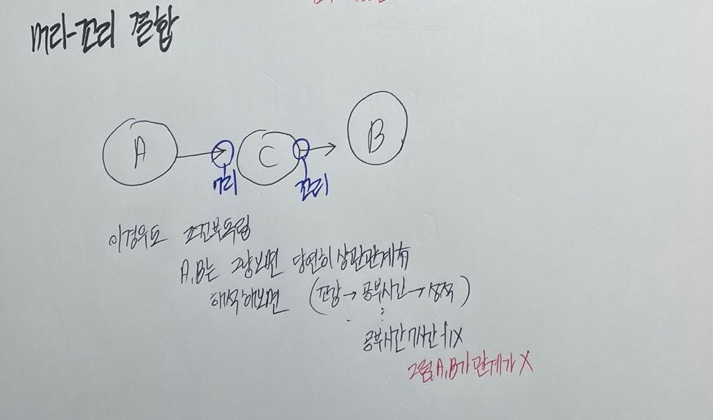 머리-꼬리 결합
A
C
B
머리
꼬리
이경우도 조건부독립
A,B는 그냥보면 당연히 상관관계有
해석해보면 ( → 공부시간 → 성적 )
공부시간 7시간 fix
그럼, A,B가 관계가 X